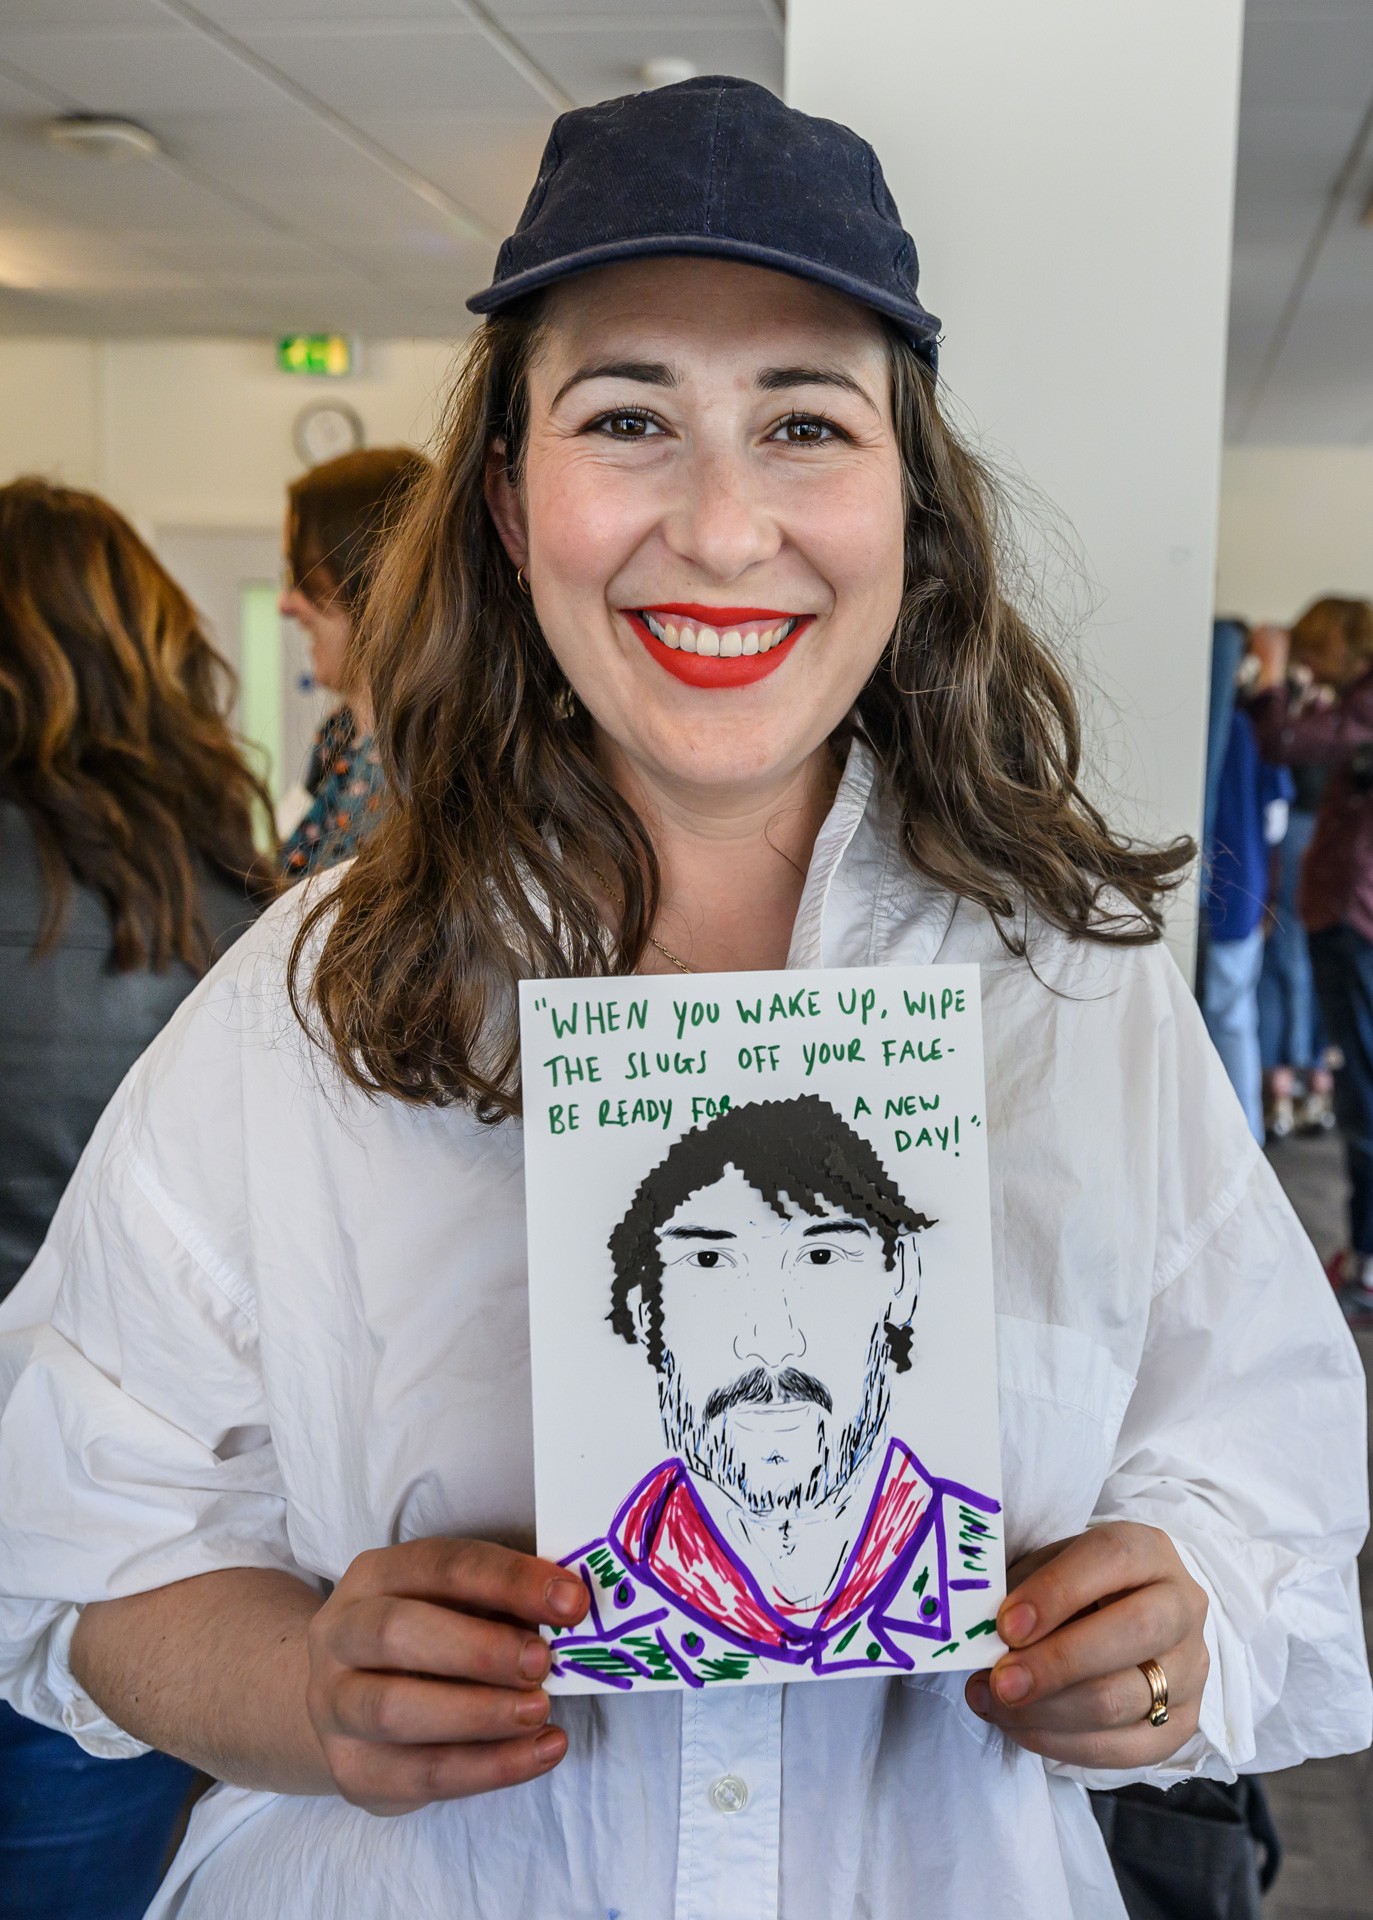 "WHEN YOU WAKE UP, WIPE
THE SLUGS OFF YOUR FACE-
BE READY FOR A NEW
DAY!"